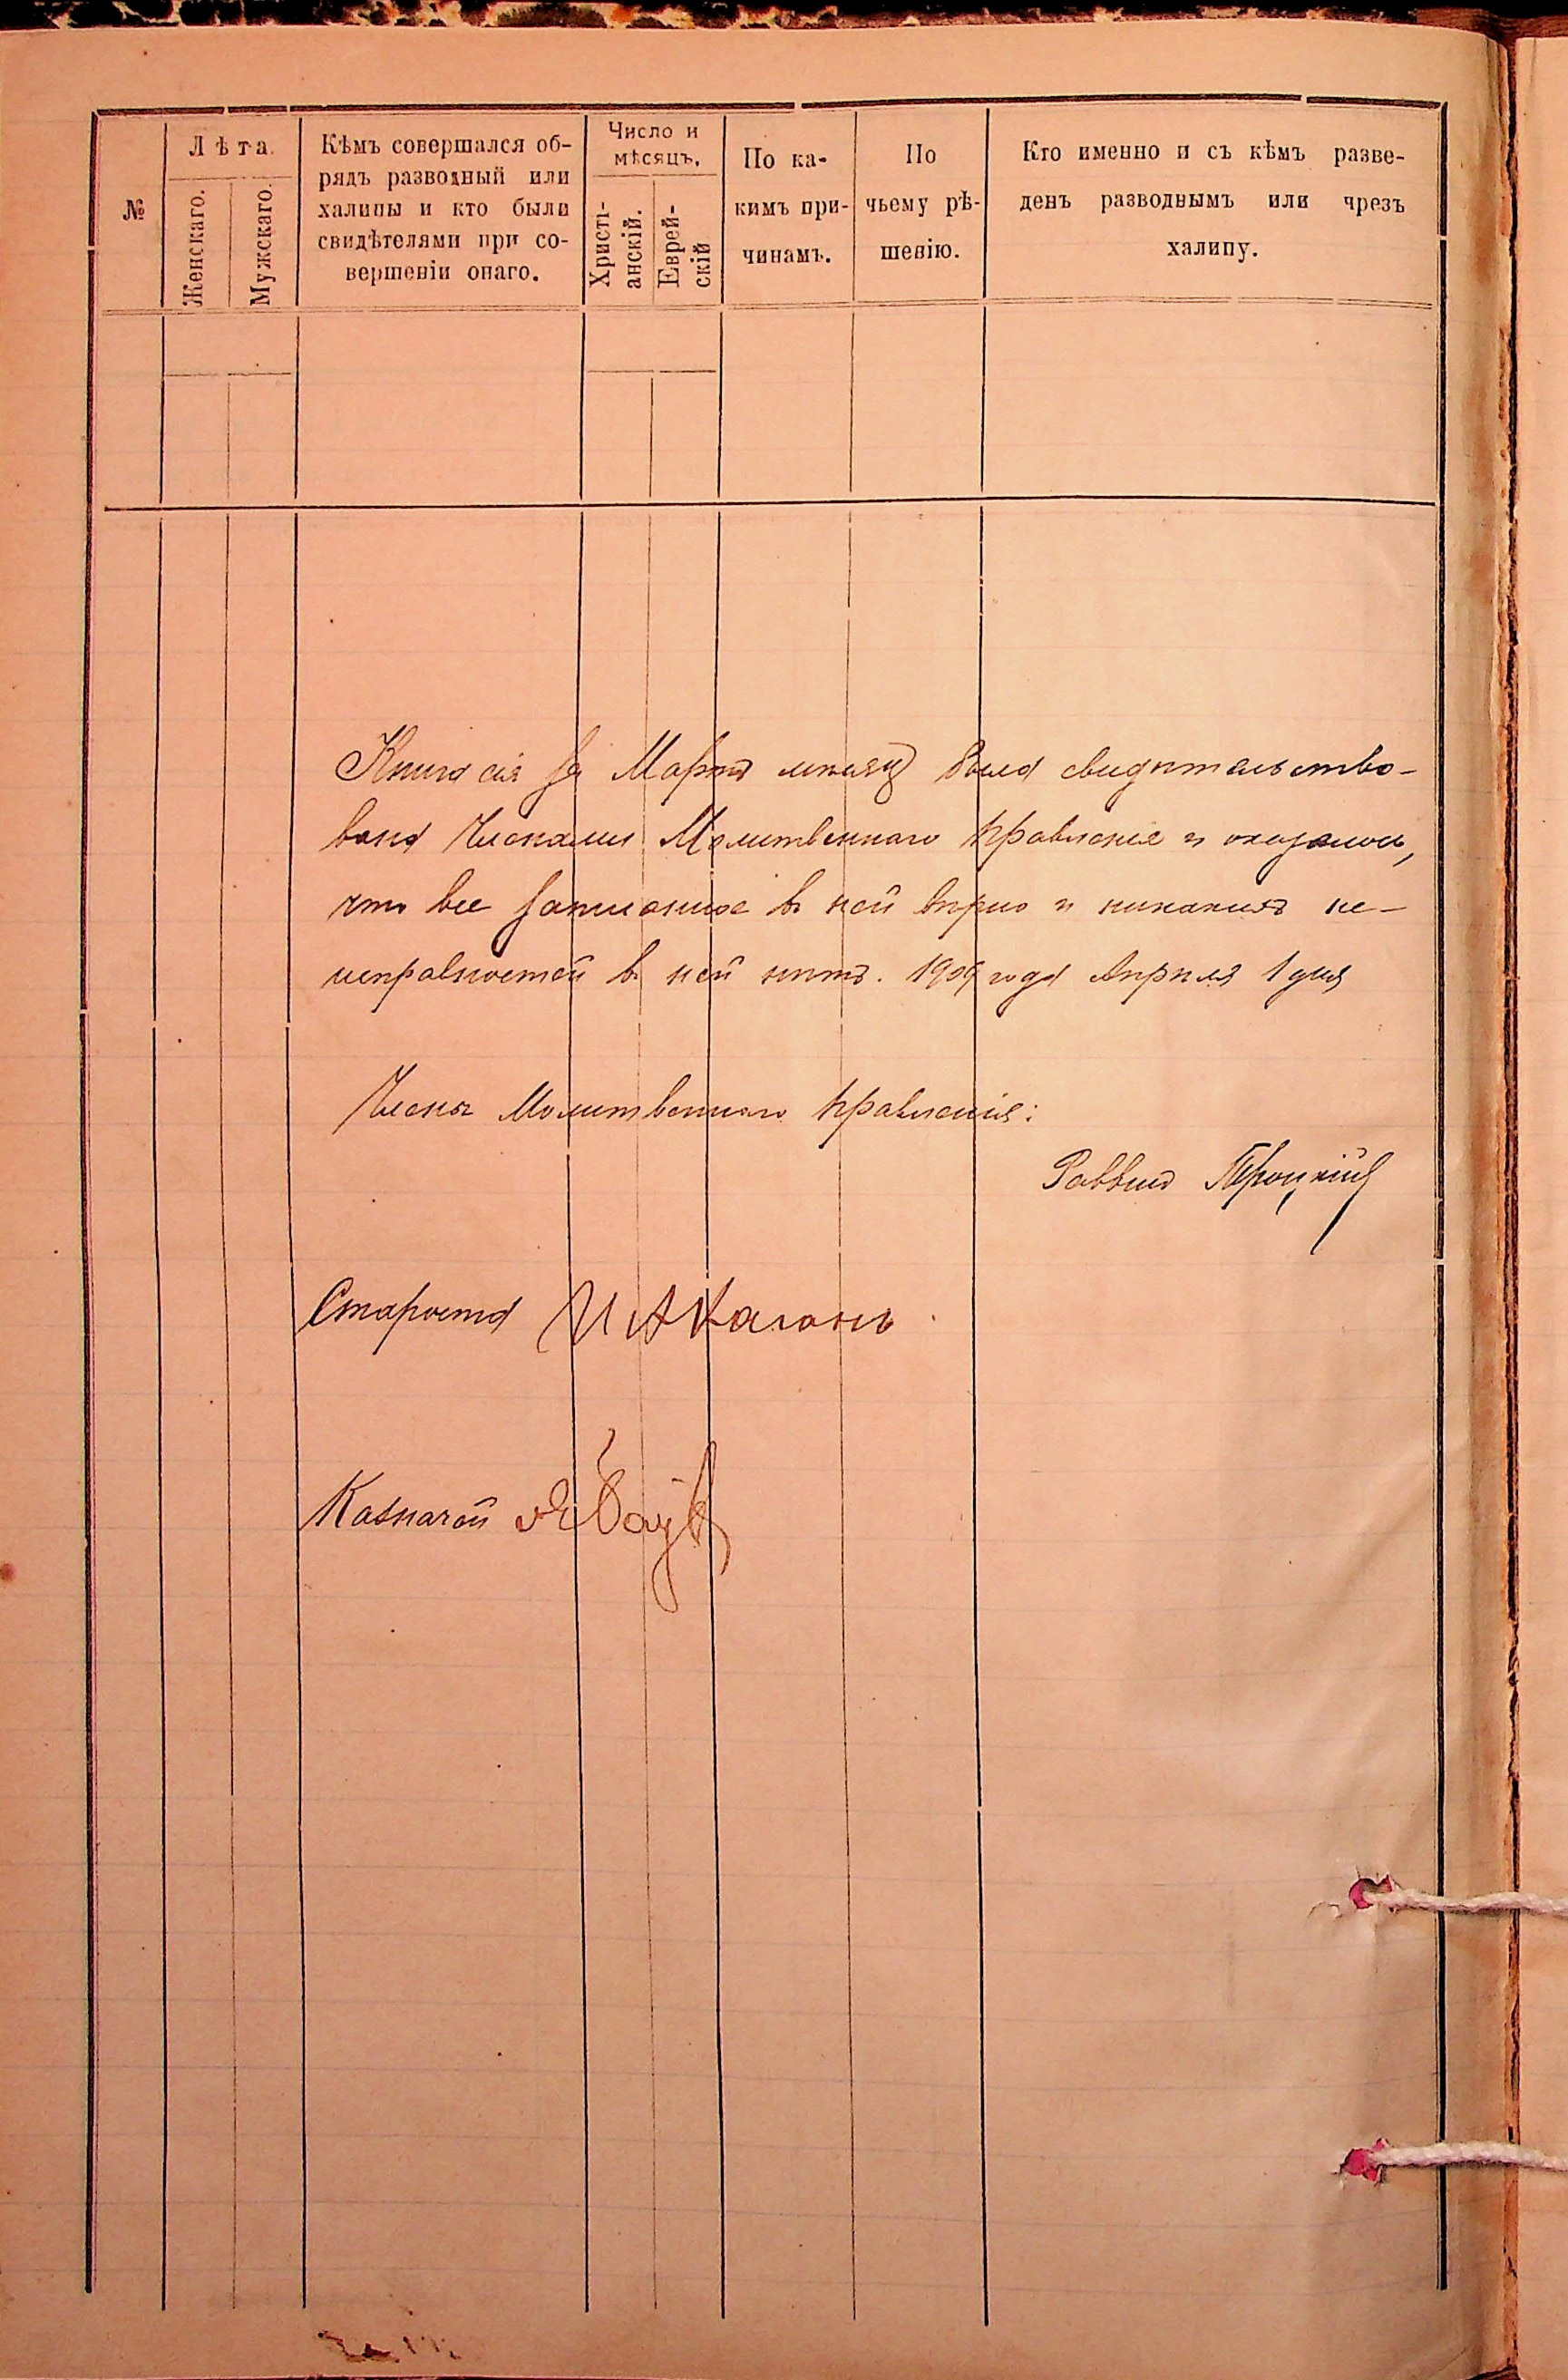 №
Лѣта.
Женскаго.
Мужскаго.
Кѣмъ совершался об-
рядъ разводный или
халицы и кто были
свидѣтелями при со-
вершеніи онаго.
Число и
мѣсяцъ.
Христі-
анскій.
Еврей-
скій
По ка-
кимъ при-
чинамъ.
По
чьему рѣ-
шенію.
Кто именно и съ кѣмъ разве-
денъ разводнымъ или чрезъ
халицу.
Книга сія за Мартъ мѣсяцъ была свидѣтельство-
вана Членами Молитвеннаго Правленія и оказалось,
что все записанное въ ней вѣрно и никакихъ не-
исправностей въ ней нѣтъ. 1909 года Апрѣля 1 дня
Члены Молитвеннаго Правленія:
Раввинъ Троцкій
Староста И А Каганъ
Казначей